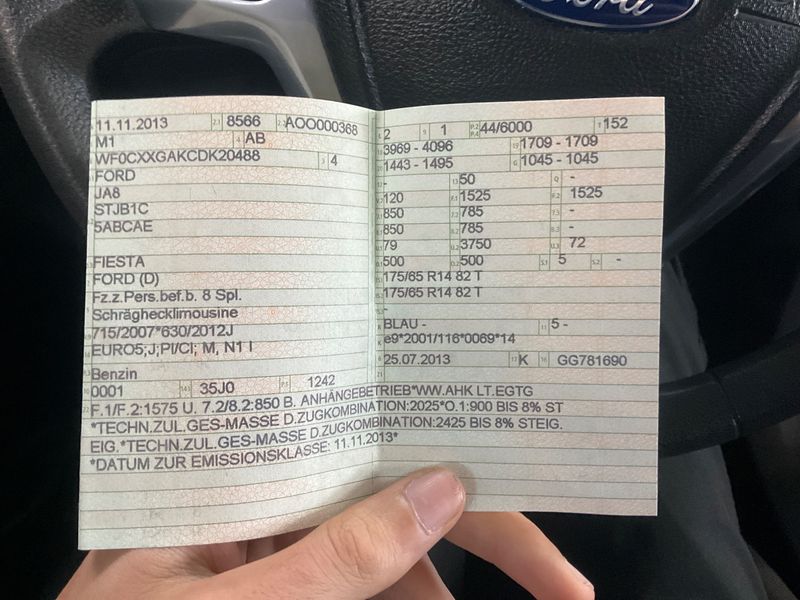 11.11.2013 2.1 8566 2.2 AOO000368
M1 4 AB
WF0CXXGAKCDK20488 3 4
FORD
JA8
STJB1C
5ABCAE
FIESTA
FORD (D)
Fz.z.Pers.bef.b. 8 Spl.
Schräghecklimousine
715/2007*630/2012J
EURO5;J;PI/CI; M, N1 I
Benzin
0001 14.1 35J0 P.1 1242
2 9 1 P.2 P.4 44/6000 T 152
3969 - 4096 1709 - 1709
1443 - 1495 G 1045 - 1045
- 13 50 Q -
120 F.1 1525 F.2 1525
850 7.2 785 7.3 -
850 8.2 785 8.3 -
79 U.2 3750 U.3 72
500 O.2 500 S.1 5 S.2 -
175/65 R14 82 T
175/65 R14 82 T
-
BLAU - 11 5 -
e9*2001/116*0069*14
25.07.2013 17 K 16 GG781690
21
F.1/F.2:1575 U. 7.2/8.2:850 B. ANHÄNGEBETRIEB*WW.AHK LT.EGTG
*TECHN.ZUL.GES-MASSE D.ZUGKOMBINATION:2025*O.1:900 BIS 8% ST
EIG.*TECHN.ZUL.GES-MASSE D.ZUGKOMBINATION:2425 BIS 8% STEIG.
*DATUM ZUR EMISSIONSKLASSE: 11.11.2013*